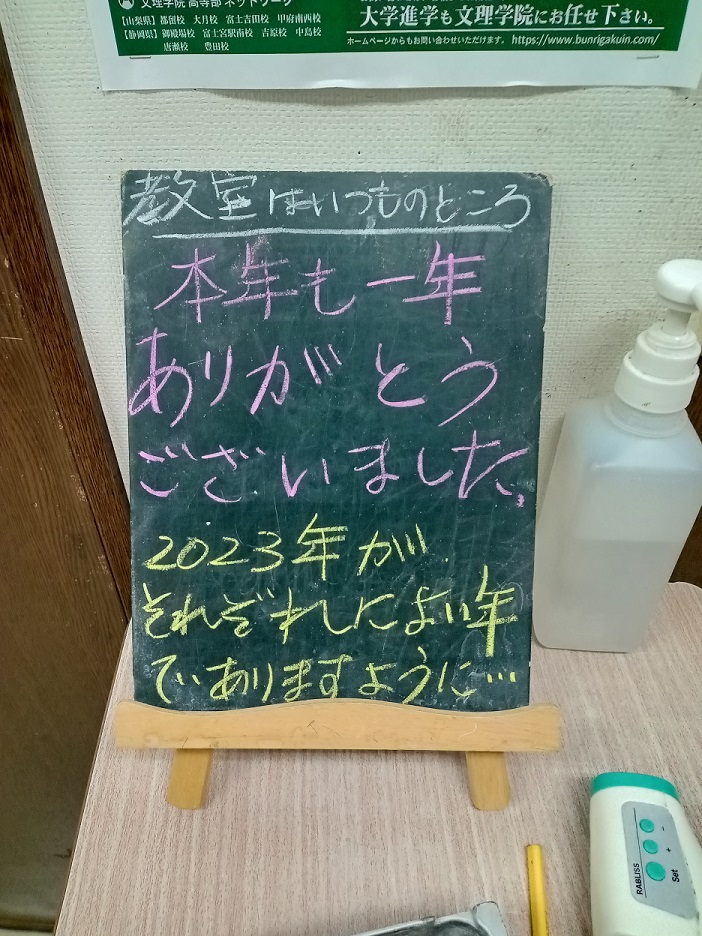 文理学院 高等部 ネットワーク
【山梨県】都留校 大月校 富士吉田校 甲府南西校
【静岡県】御殿場校 富士宮駅南校 吉原校 中島校
唐瀬校 豊田校
大学進学も文理学院にお任せ下さい。
ホームページからもお問い合わせいただけます。 https://www.bunrigakuin.com/
教室はいつものところ
本年も一年
ありがとう
ございました。
2023年が
それぞれによい年
でありますように…
RABLISS
Set
+
-